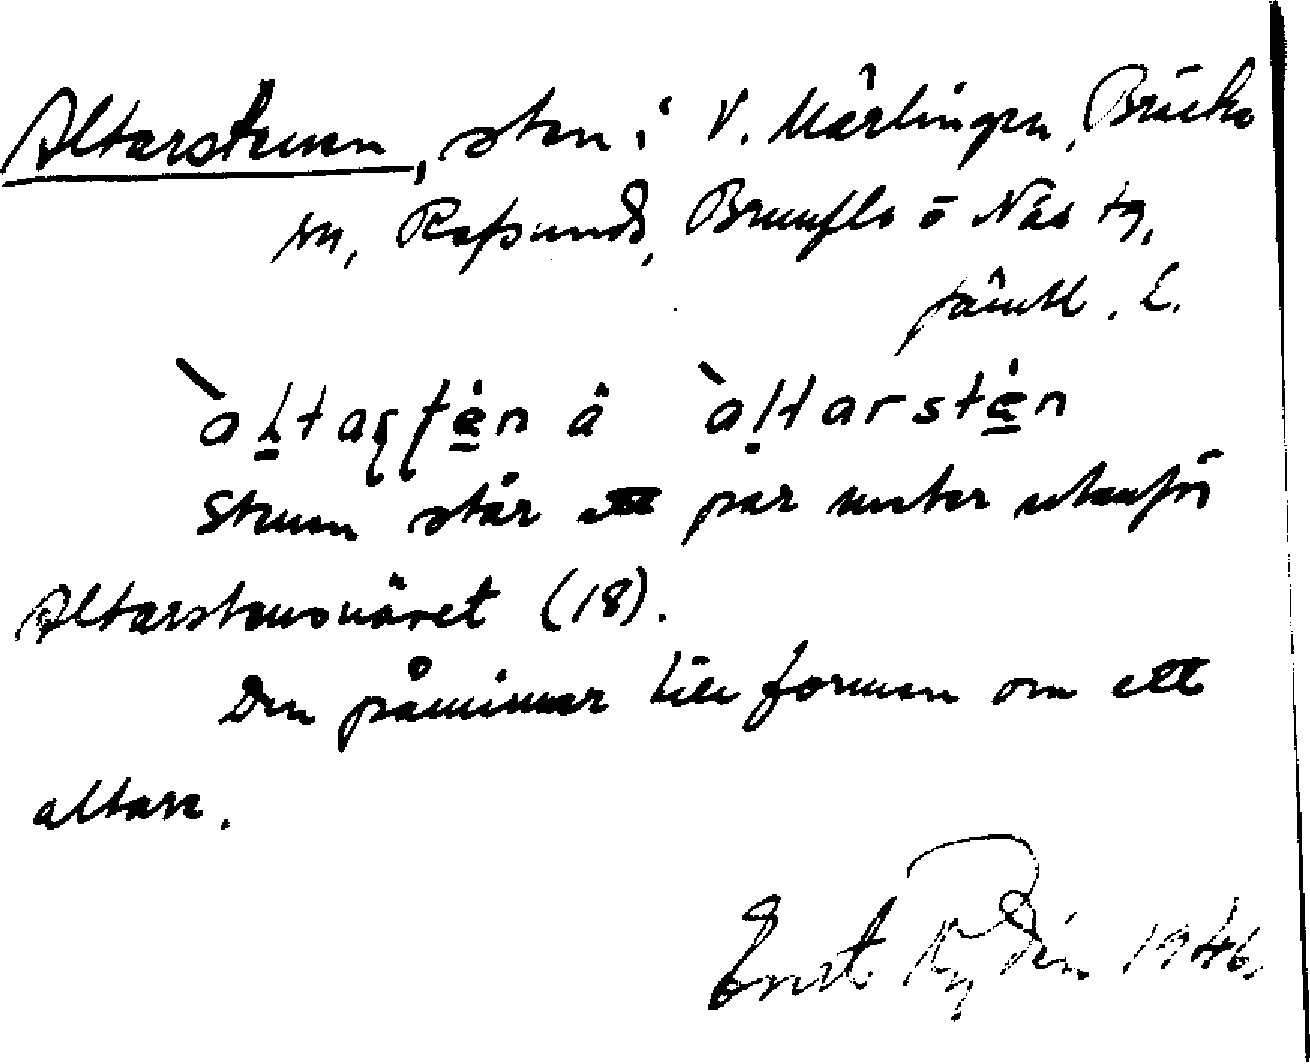 Altarstenen, sten i V. Märlingen, Bräcke
sn, Refsunds, Brunflo o Näs tg,
Jämtl. L.
å àltarstèn
Stenen står ett par meter utanför
Altarstensnäset (18).
Den påminner till formen om ett
altare.
Ernst Rydén 1946.